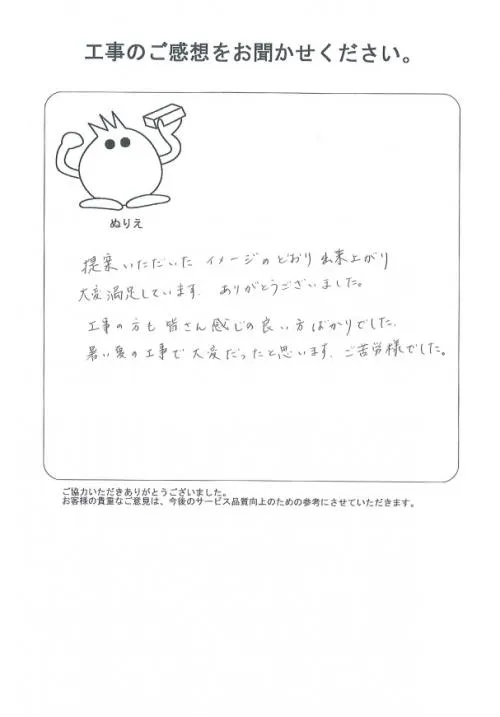 工事のご感想をお聞かせください。
ぬりえ
提案いただいた イメージのどおり 出来上がり
大変満足しています. ありがとうございました。
工事の方も 皆さん 感じの良い方ばかりでした.
暑い夏の工事で 大変だったと思います. ご苦労様でした。
ご協力いただきありがとうございました。
お客様の貴重なご意見は、今後のサービス品質向上のための参考にさせていただきます。